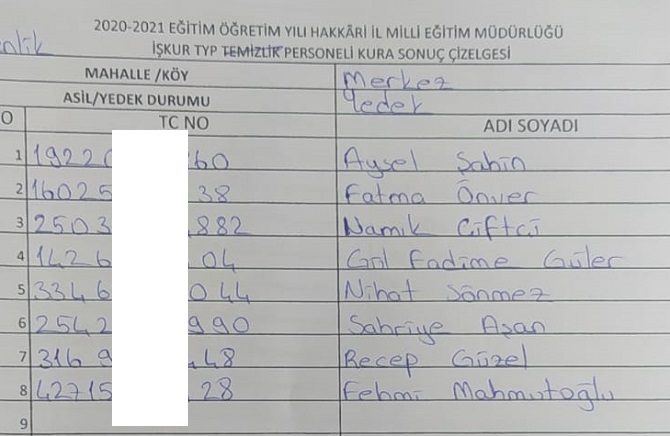 2020-2021 EĞİTİM ÖĞRETİM YILI HAKKÂRİ İL MİLLİ EĞİTİM MÜDÜRLÜĞÜ
İŞKUR TYP TEMİZLİK PERSONELİ KURA SONUÇ ÇİZELGESİ
MAHALLE /KÖY Merkez
ASİL/YEDEK DURUMU Yedek
O TC NO ADI SOYADI
1 19220 60 Aysel Şahin
2 16025 38 Fatma Önver
3 2503 882 Namık Çiftçi
4 1426 04 Gül Fadime Güler
5 3346 044 Nihat Sönmez
6 2542 990 Sahriye Aşan
7 3169 48 Recep Güzel
8 42715 28 Fehmi Mahmutoğlu
9